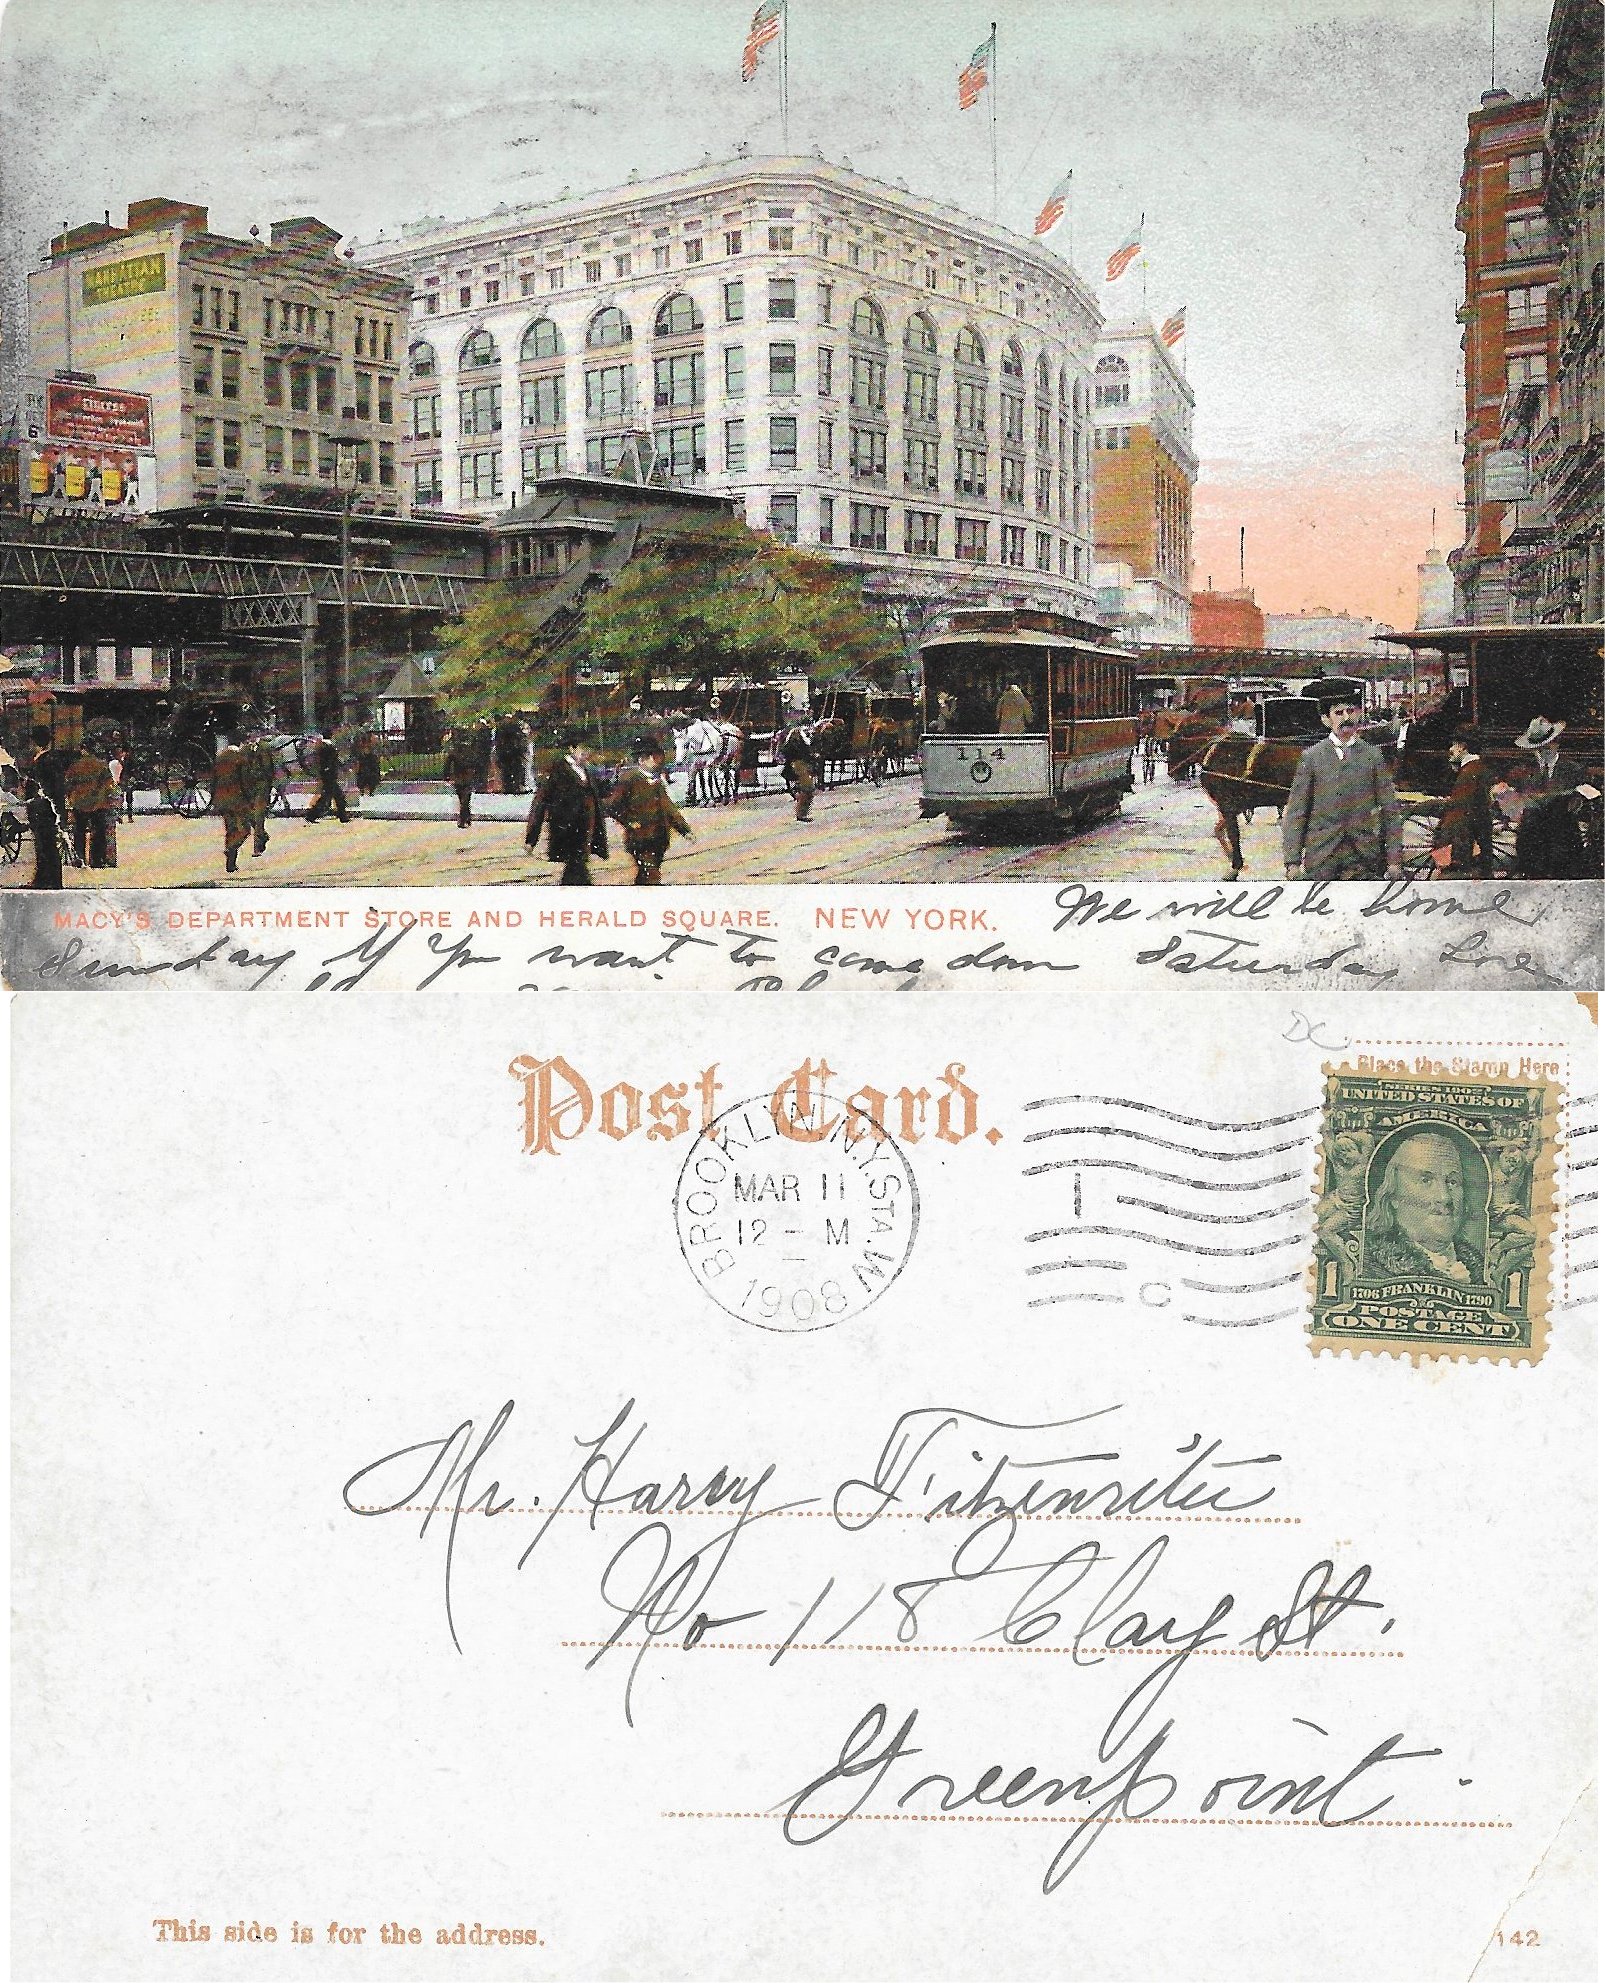 MANHATTAN
THEATRE
114
MACY'S DEPARTMENT STORE AND HERALD SQUARE. NEW YORK.
We will be home
Sunday If you want to come down Saturday Love
Post Card.
DC
Place the Stamp Here
BROOKLYN, N.Y. STA. W
MAR 11
12 - M
1908
1 C
SERIES 1902
UNITED STATES OF
AMERICA
1 1706 FRANKLIN 1790 1
POSTAGE
ONE CENT
Mr. Harry Fitzenreiter
No 118 Clay St.
Greenpoint.
This side is for the address.
142